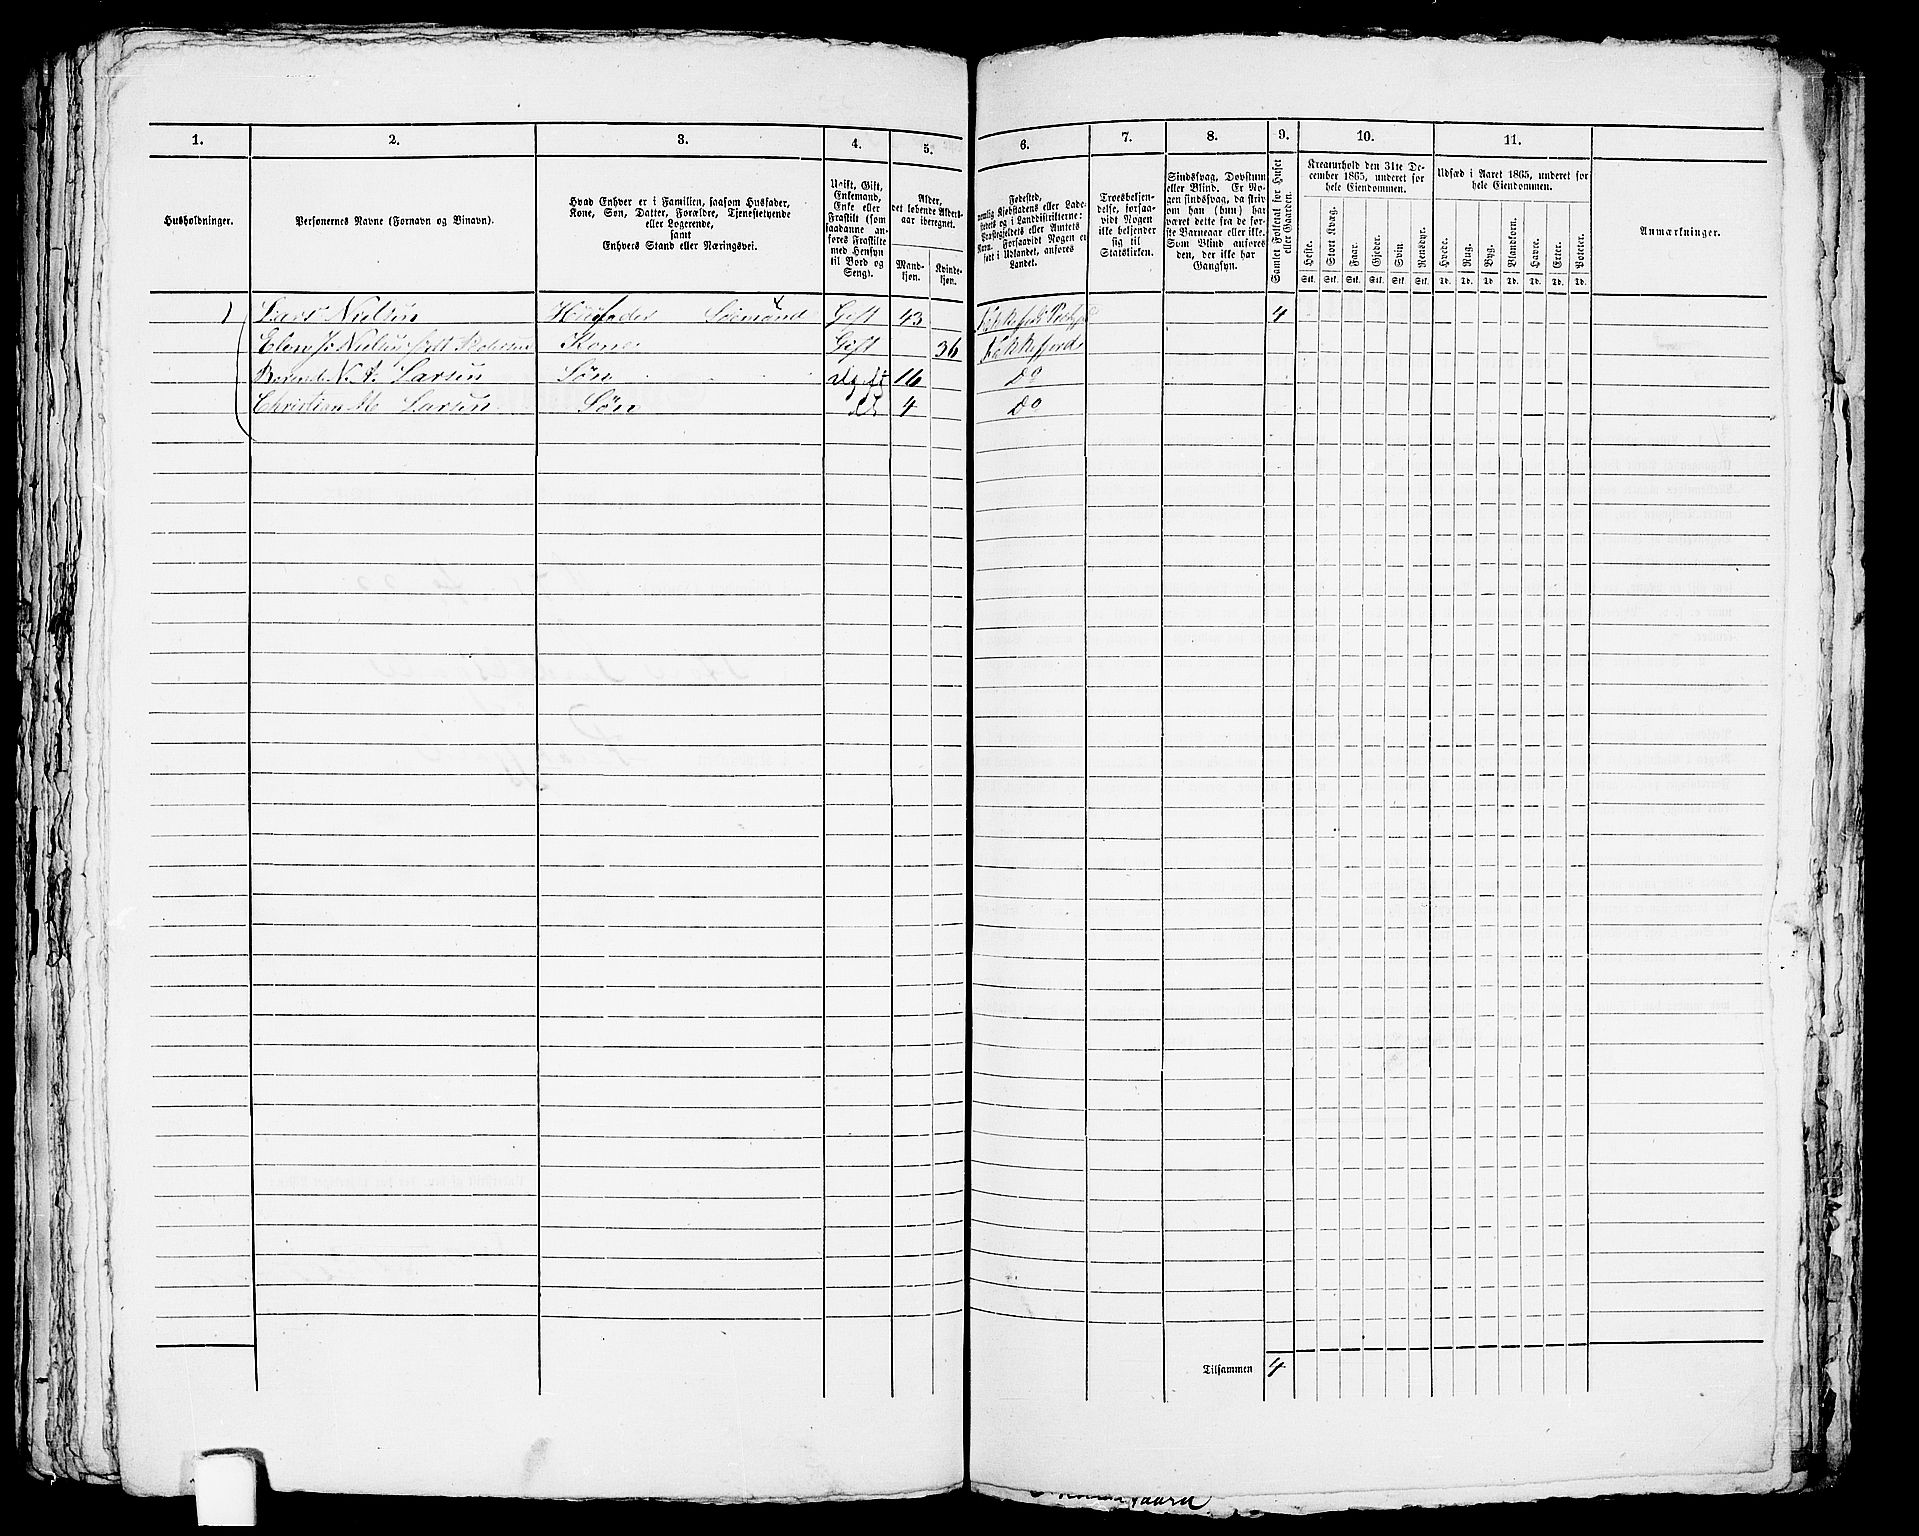 1. 2. 3. 4. 5. 6. 7. 8. 9. 10. 11.
Husholdninger.
Personernes Navne (Fornavn og Binavn).
Hvad Enhver er i Familien, saasom Husfader,
Kone, Søn, Datter, Forældre, Tjenestetyende
eller Logerende,
samt
Enhvers Stand eller Næringsvei.
Ugift, Gift,
Enkemand,
Enke eller
Fraskilt (som
saadanne an-
føres Fraskilte
med Hensyn
til Bord og
Seng).
Alder,
det løbende Alders-
aar iberegnet.
Mand-
kjøn.
Kvinde-
kjøn.
Fødested,
nemlig Kjøbstadens eller Lade-
stedets og i Landdistrikterne:
Præstegjeldets eller Amtets
Navn. Forsaavidt Nogen er
født i Udlandet, anføres
Landet.
Troesbekjen-
delse, forsaa-
vidt Nogen
ikke bekjender
sig til
Statskirken.
Sindssvag, Døvstum
eller Blind. Er No-
gen sindssvag, da skriv
om han (hun) har
været dette fra de før-
ste Barneaar eller ikke.
Som Blind anføres
den, der ikke har
Gangsyn.
Samlet Folketal for Huset
eller Gaarden.
Kreaturhold den 31te De-
cember 1865, underet for
hele Eiendommen.
Heste. Stort Kvæg. Faar. Gjeder. Svin Rensdyr.
Stk. Stk. Stk. Stk. Stk Stk.
Udsæd i Aaret 1865, underet for
hele Eiendommen.
Hvede. Rug. Byg. Blandkorn. Havre. Erter. Poteter.
Td. Td. Td Td. Td. Td. Td.
Anmærkninger.
1 Lars Nielsen Huusfader Sømand Gift 43 4
Elen J. Nielsen født Pedersen Kone Gift 36 Flekkefjord
Berent N. A. Larsen Søn Ugift 16 Do
Christian M Larsen Søn 4 Do
Tilsammen 4